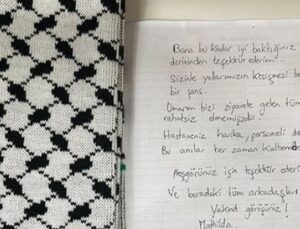 Bana bu kadar iyi baktığınız
derinden teşekkür ederim.
Sizinle yollarımızın kesişmesi be
bir şans.
Umarım bizi ziyarete gelen tüm
rahatsız etmemişdir.
Hastaneniz harika, personeli d
Bu anılar her zaman kalbim
Hoşgörünüz için teşekkür ederi
Ve buradaki tüm arkadaşlar
Yakınd görüşürüz!
Mathilda.